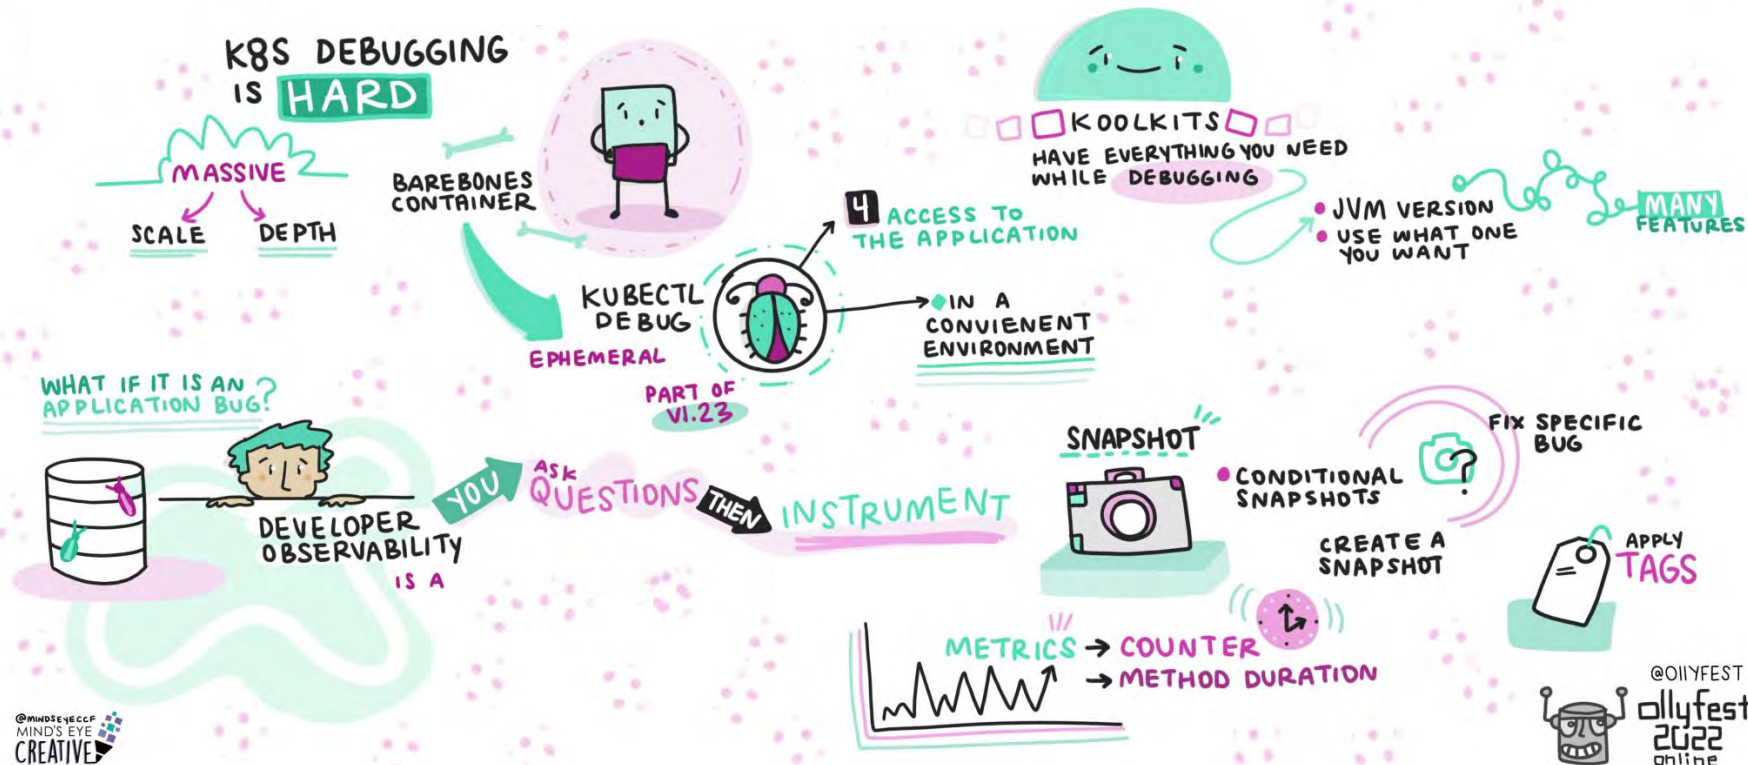 K8S DEBUGGING
IS HARD
MASSIVE
SCALE
DEPTH
BAREBONES
CONTAINER
KUBECTL
DEBUG
EPHEMERAL
PART OF
V1.23
4 ACCESS TO
THE APPLICATION
IN A
CONVIENENT
ENVIRONMENT
KOOLKITS
HAVE EVERYTHING YOU NEED
WHILE DEBUGGING
JVM VERSION
USE WHAT ONE
YOU WANT
MANY
FEATURES
WHAT IF IT IS AN
APPLICATION BUG?
DEVELOPER
OBSERVABILITY
IS A
YOU
ASK
QUESTIONS
THEN
INSTRUMENT
SNAPSHOT
CONDITIONAL
SNAPSHOTS
?
FIX SPECIFIC
BUG
CREATE A
SNAPSHOT
APPLY
TAGS
METRICS → COUNTER
→ METHOD DURATION
@MINDSEYECCF
MIND'S EYE
CREATIVE
@OllYFEST
ollyfest
2022
online